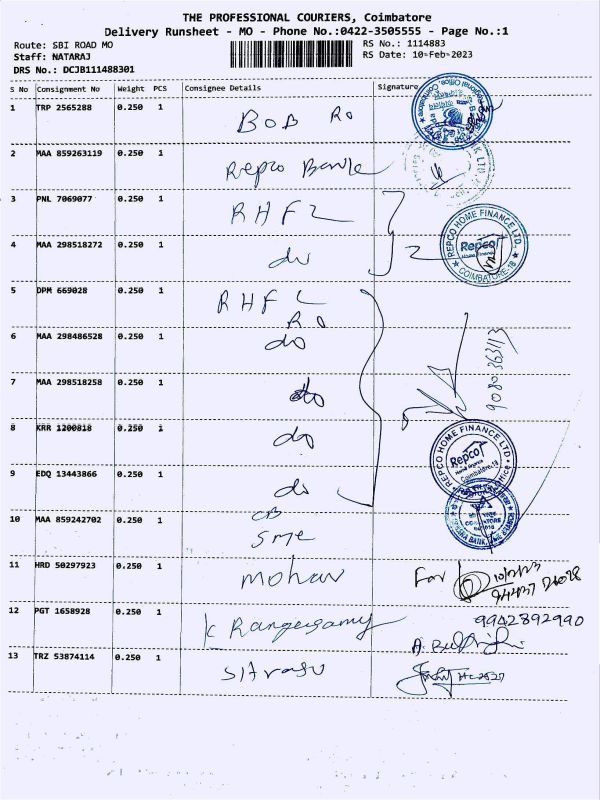 THE PROFESSIONAL COURIERS, Coimbatore
Delivery Runsheet - MO - Phone No.:0422-3505555 - Page No.:1
Route: SBI ROAD MO
RS No.: 1114883
Staff: NATARAJ
RS Date: 10-Feb-2023
DRS No.: DCJB111488301
S No Consignment No Weight PCS Consignee Details Signature
1 TRP 2565288 0.250 1 BOB RO
2 MAA 859263119 0.250 1 Repco Bank
3 PNL 7069077 0.250 1 RHFL
4 MAA 298518272 0.250 1 do 2
REPCO HOME FINANCE LTD.
Repco
Home Finance
COIMBATORE-18
5 DPM 669028 0.250 1 RHFL
RO
6 MAA 298486528 0.250 1 do
9080363113
7 MAA 298518258 0.250 1 do
8 KRR 1200818 0.250 1 do
REPCO HOME FINANCE LTD
Repco
Home Finance
Coimbatore-18
9 EDQ 13443866 0.250 1 do
10 MAA 859242702 0.250 1 CB
SME
COIMBATORE
11 HRD 50297923 0.250 1 mohan For 10/2/23
12 PGT 1658928 0.250 1 K Rangasamy 9942892990
13 TRZ 53874114 0.250 1